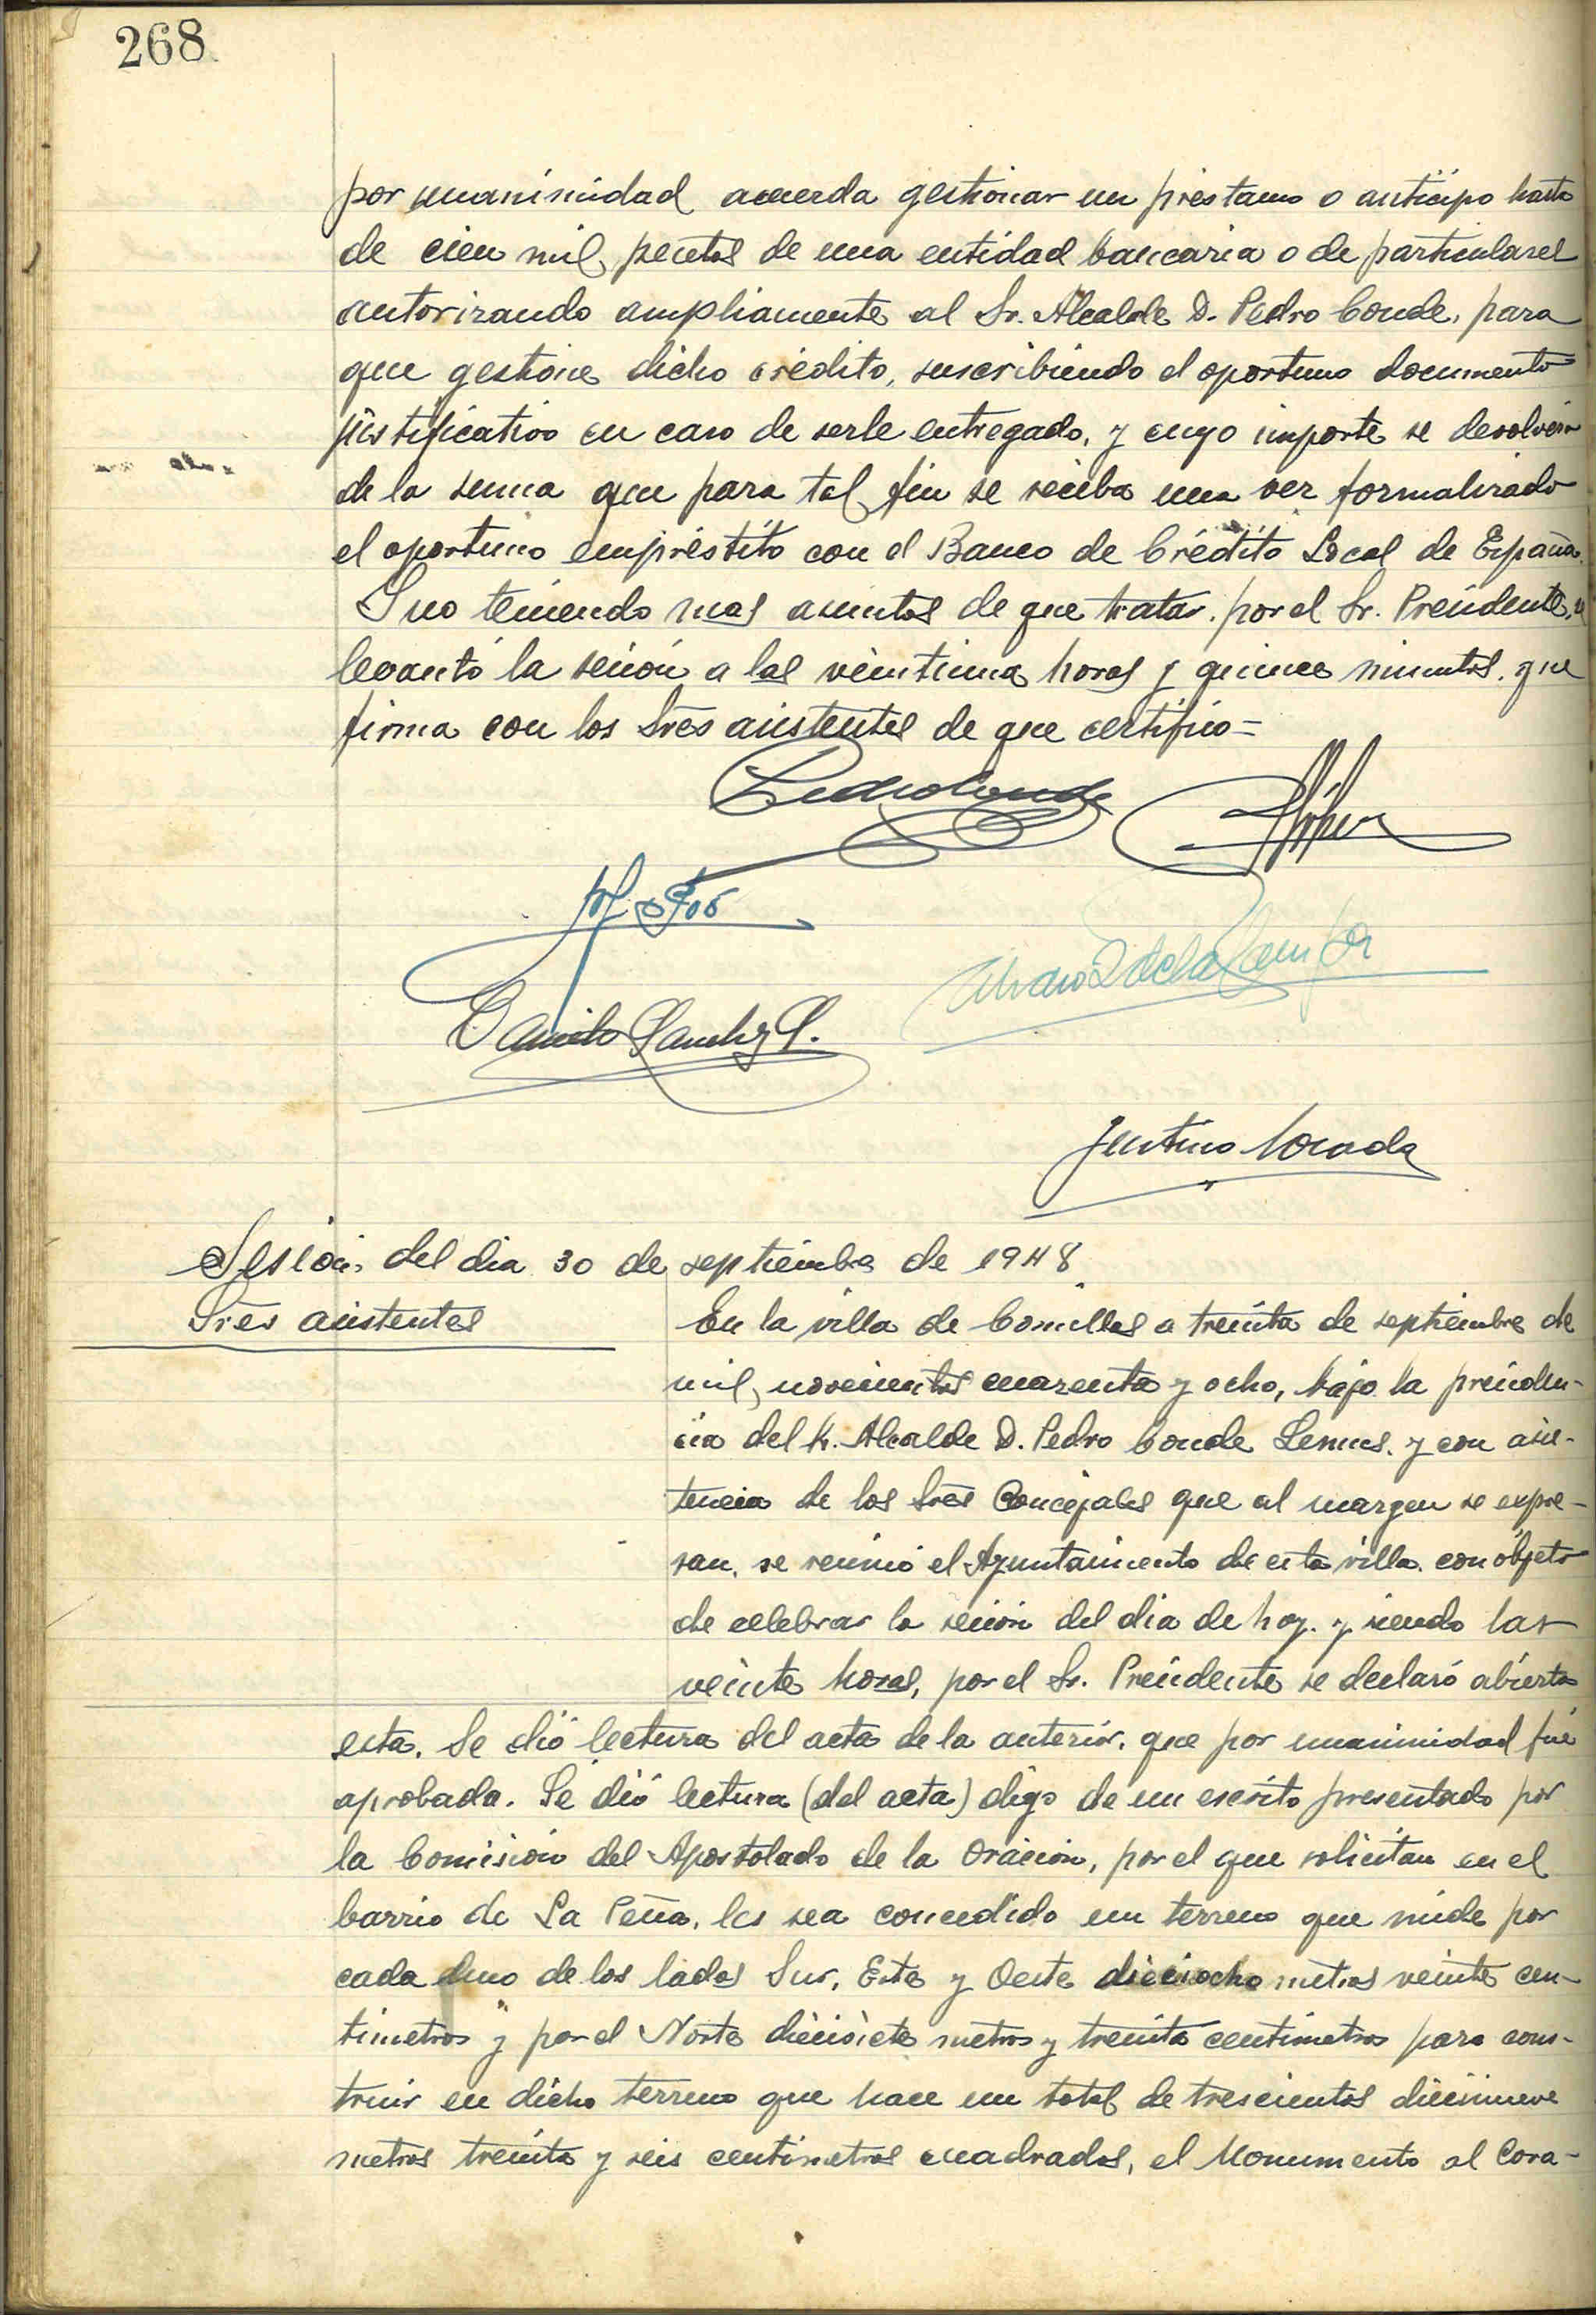 268
por unanimidad acuerda gestionar un préstamo o anticipo hasta
de cien mil pesetas de una entidad bancaria o de particulares
autorizando ampliamente al Sr. Alcalde D. Pedro Conde, para
que gestione dicho crédito, suscribiendo el oportuno documento
justificativo en caso de serle entregado, y cuyo importe se devolverá
de la suma que para tal fin se reciba una vez formalizado
el oportuno empréstito con el Banco de Crédito Local de España.
Y no teniendo mas asuntos de que tratar, por el Sr. Presidente, se
levantó la sesión a las veintiuna horas y quince minutos, que
firma con los Sres asistentes de que certifico=
Pedro Conde
Alvaro de la
Camilo Sanchez
Justino
Sesión del dia 30 de septiembre de 1948
Sres asistentes
En la villa de Comillas a treinta de septiembre de
mil, novecientos cuarenta y ocho, bajo la presiden-
cia del Sr. Alcalde D. Pedro Conde Lemus, y con asis-
tencia de los Sres Concejales que al margen se expre-
san, se reunió el Ayuntamiento de esta villa, con objeto
de celebrar la sesión del dia de hoy, y siendo las
veinte horas, por el Sr. Presidente se declaró abierta
esta. Se dió lectura del acta de la anterior, que por unanimidad fué
aprobada. Se dió lectura (del acta) digo de un escrito presentado por
la Comisión del Apostolado de la Oración, por el que solicitan en el
barrio de La Peña, les sea concedido un terreno que mide por
cada uno de los lados Sur, Este y Oeste dieciocho metros veinte cen-
timetros y por el Norte diecisiete metros y treinta centimetros para cons-
truir en dicho terreno que hace un total de trescientos diecinueve
metros treinta y seis centimetros cuadrados, el Monumento al Cora-